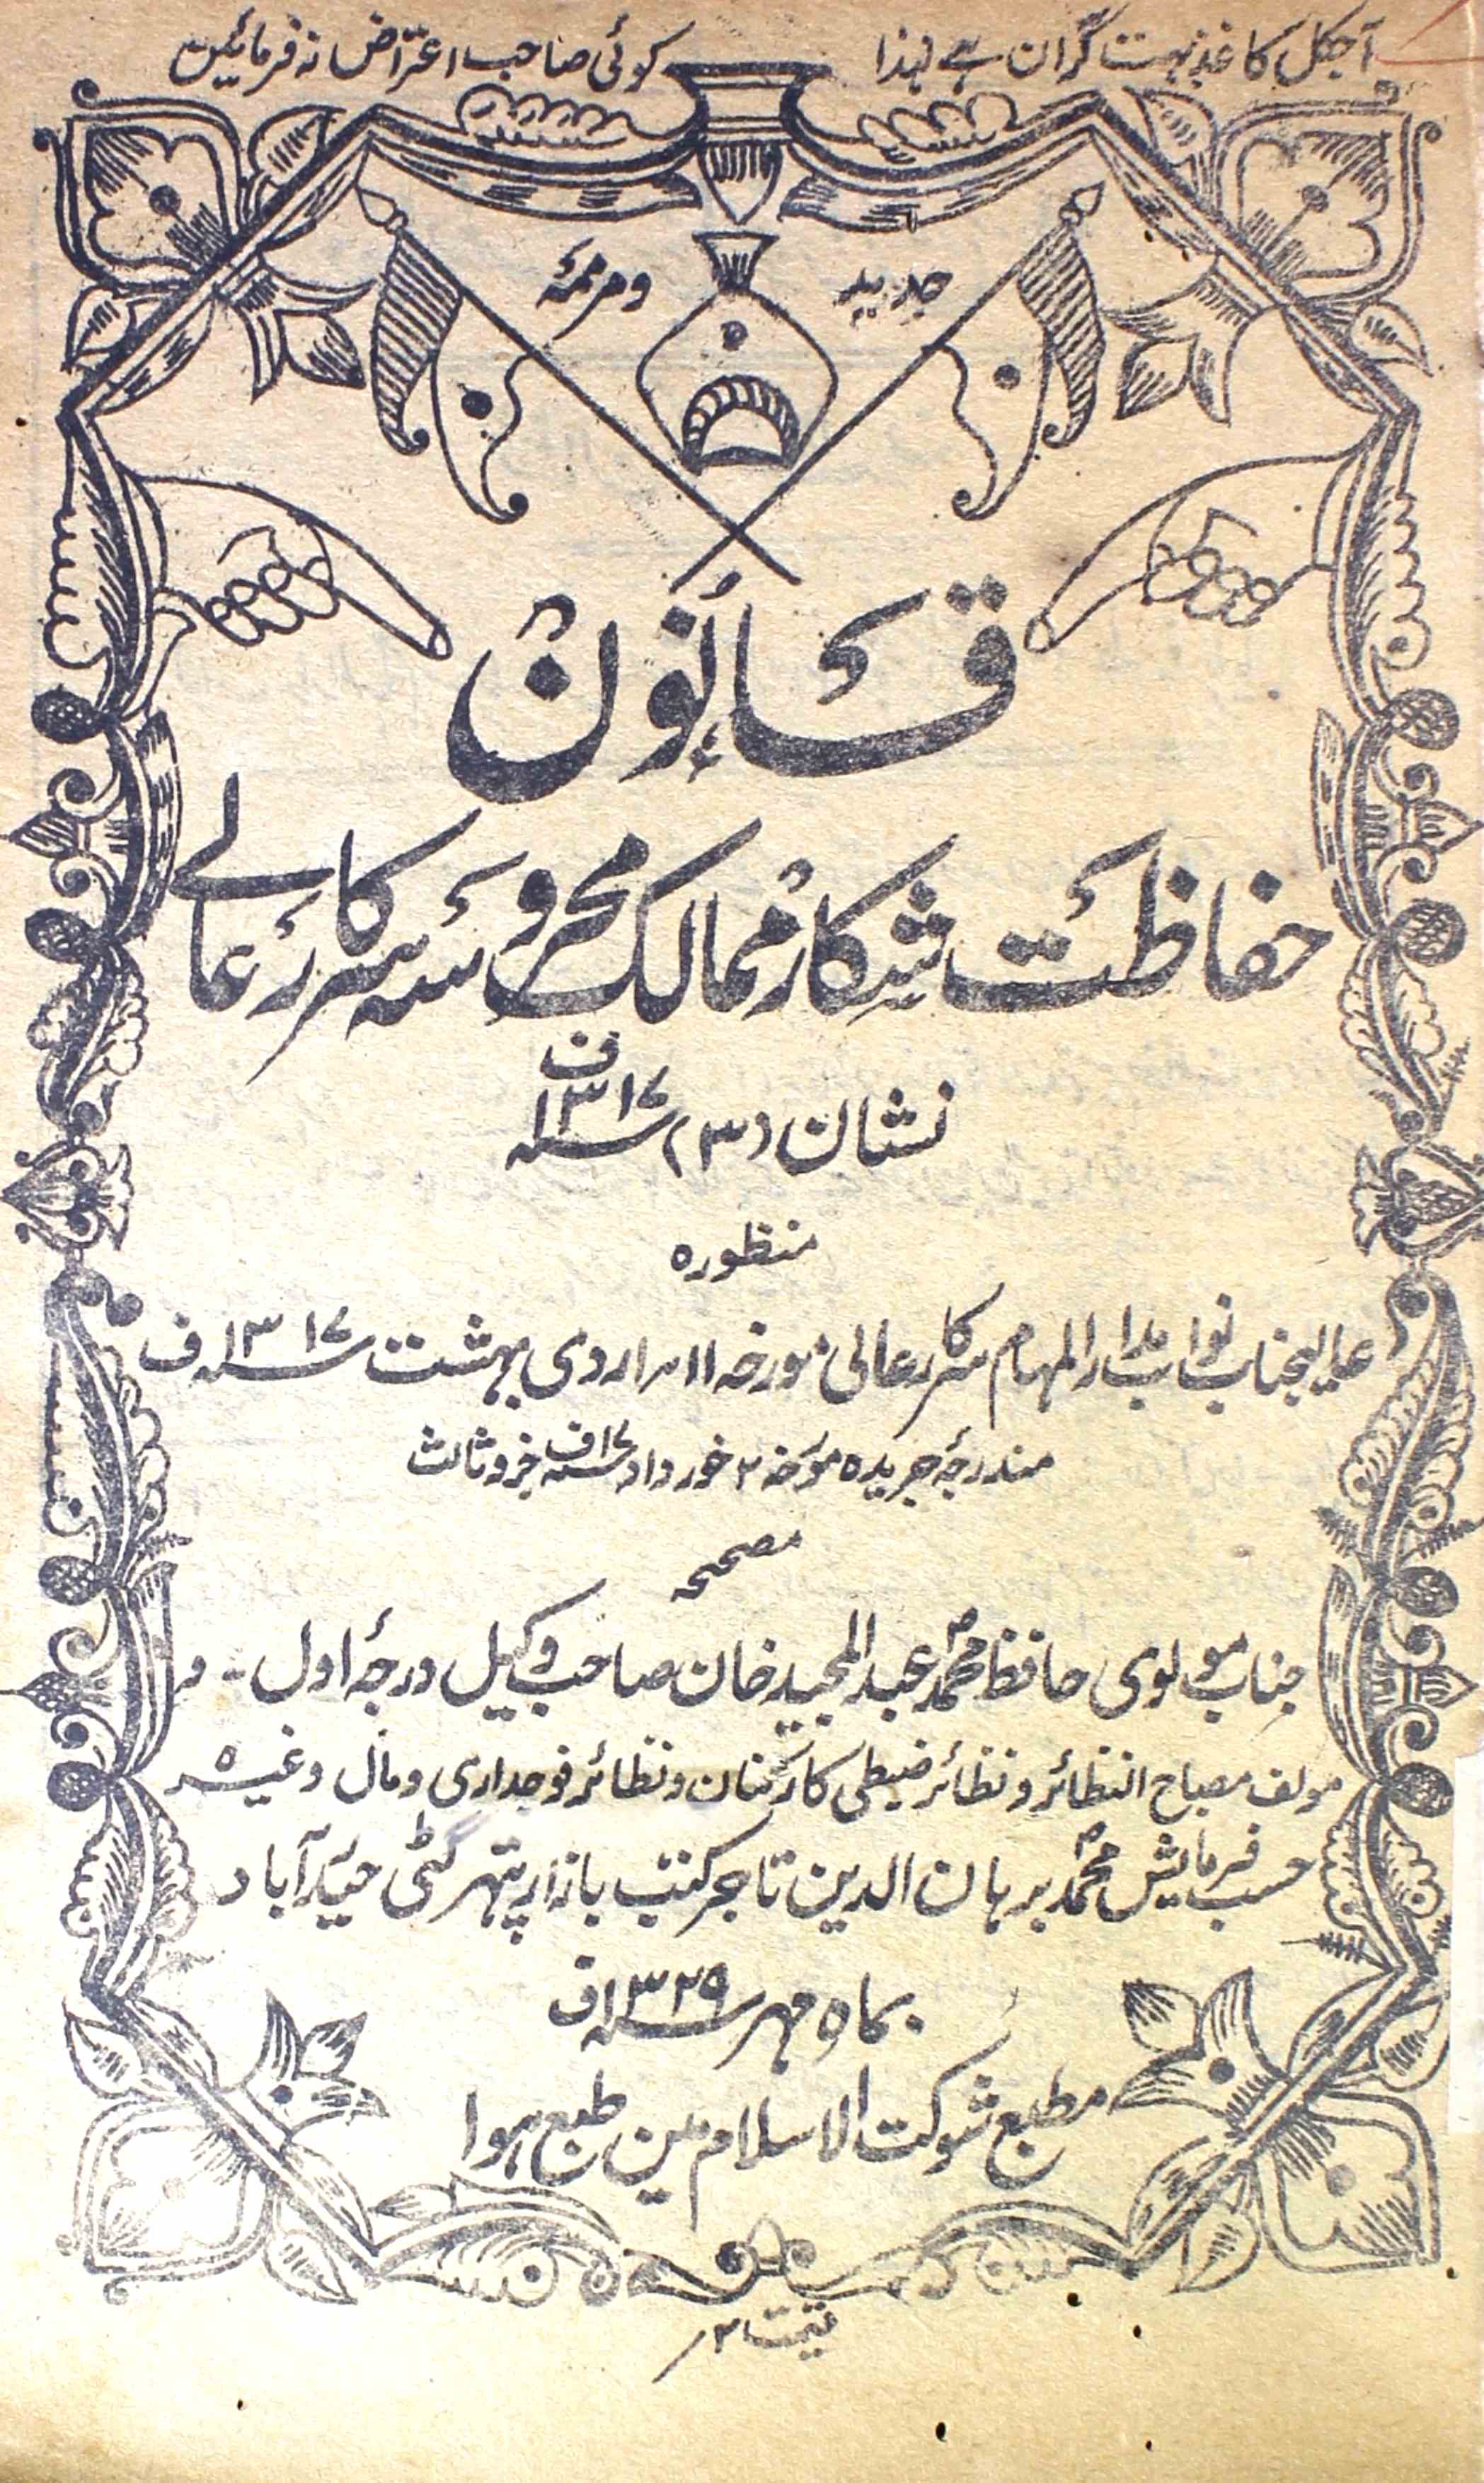 آجکل کاغذ بہت گران ہے لہذا کوئی صاحب اعتراض نہ فرمائین
جدیدہ ومرممہٗ
قانون
حفاظت شکار ممالک محروسہ سرکار عالے
نشان (۳) ۱۳۱۷؁ ف
منظورہ
عالیجناب نواب مدار المہام سرکار عالی مورخہ ۱۱ ار اردی بہشت ۱۳۱۷؁ ف
مندرجۂ جریدہ مورخہ ۲ خورداد ۱۷؁ف جزو ثالث
مصححہ
جناب مولوی حافظ محمد عبدالمجید خان صاحب وکیل درجۂ اول - و
مولف مصباح النظائر و نظائر ضبطی کارکنان و نظائر فوجداری و مال وغیرہ
حسب فرمایش محمد برہان الدین تاجر کتب بازار پتھر گٹی حیدرآباد
بماہ مہر ۱۳۲۹؁ ف
مطبع شوکت الاسلام مین طبع ہوا
قیمت ۲؍